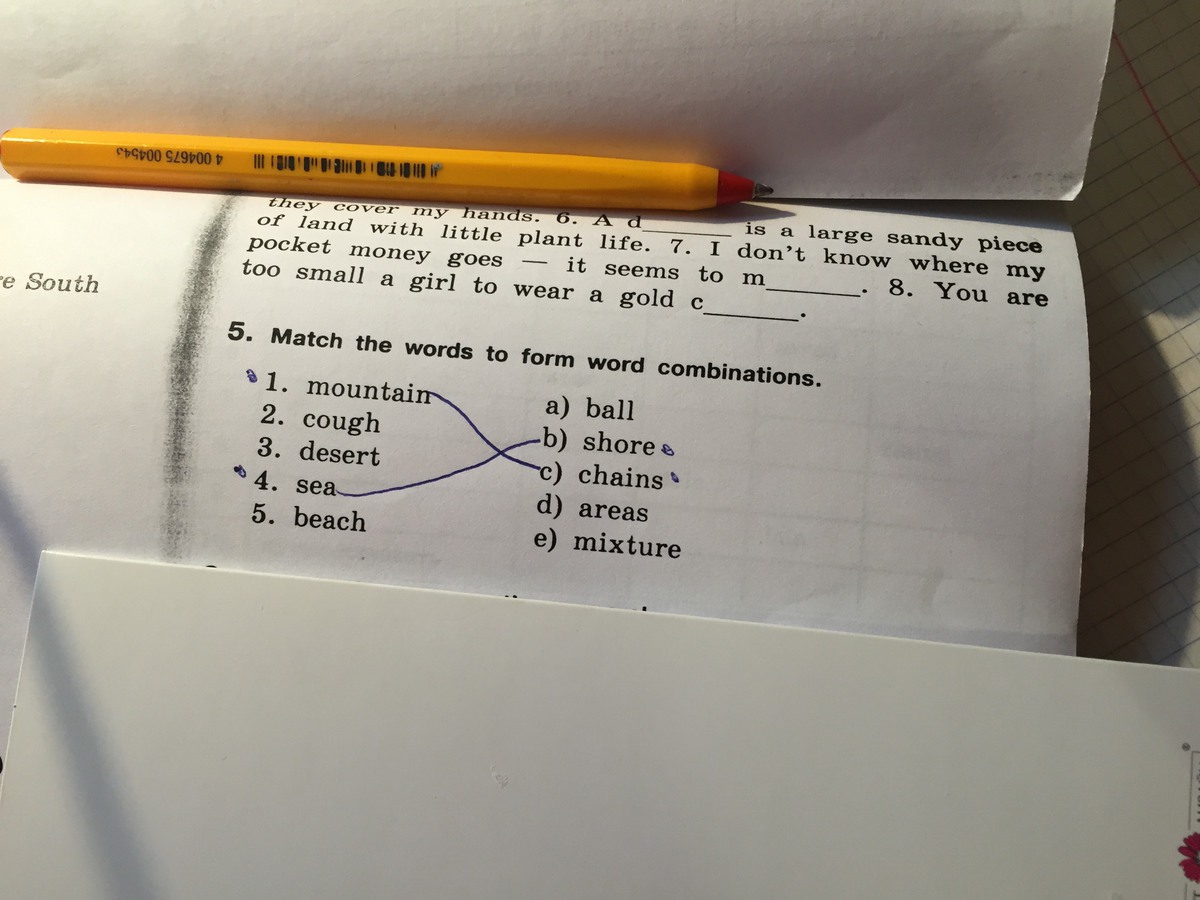 4 004675 004543
they cover my hands. 6. A d_______ is a large sandy piece
of land with little plant life. 7. I don't know where my
pocket money goes — it seems to m_______. 8. You are
too small a girl to wear a gold c_______.
South
5. Match the words to form word combinations.
1. mountain a) ball
2. cough b) shore
3. desert c) chains
4. sea d) areas
5. beach e) mixture